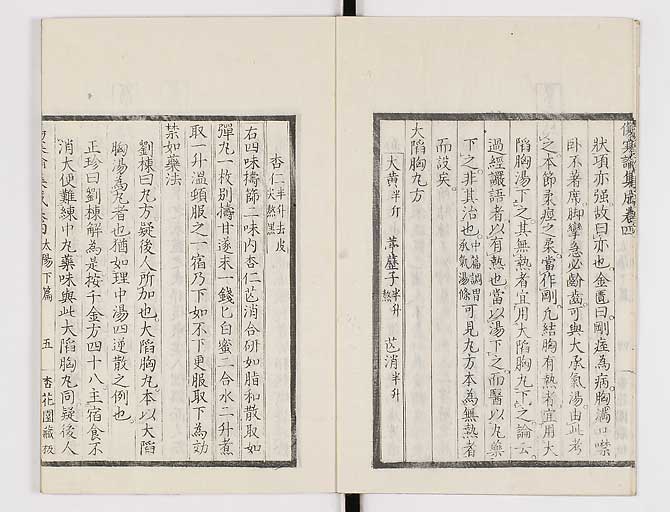 傷寒論集成卷四
狀項亦强故曰亦也金匱曰剛痙為病胸滿口噤
臥不著席脚攣急必齘齒可與大承氣湯由此考
之本節柔痙之柔當作剛凡結胸有熱者宜用大
陷胸湯下之其無熱者宜用大陷胸丸下之論云
過經讝語者以有熱也當以湯下之而醫以丸藥
下之非其治也中篇調胃承氣湯條可見丸方本為無熱者
而設矣
大陷胸丸方
大黃半斤 葶藶子半升熬 芒消半升
杏仁半升去皮尖熬黑
右四味擣篩二味內杏仁芒消合研如脂和散取如
彈丸一枚別擣甘遂末一錢匕白蜜二合水二升煮
取一升溫頓服之一宿乃下如不下更服取下為効
禁如藥法
劉棟曰丸方疑後人所加也大陷胸丸本以大陷
胸湯為丸者也猶如理中湯四逆散之例也
正珍曰劉棟解為是按千金方四十八主宿食不
消大便難練中丸藥味與此大陷胸丸同疑後人
太陽下篇 五 杏花園藏板